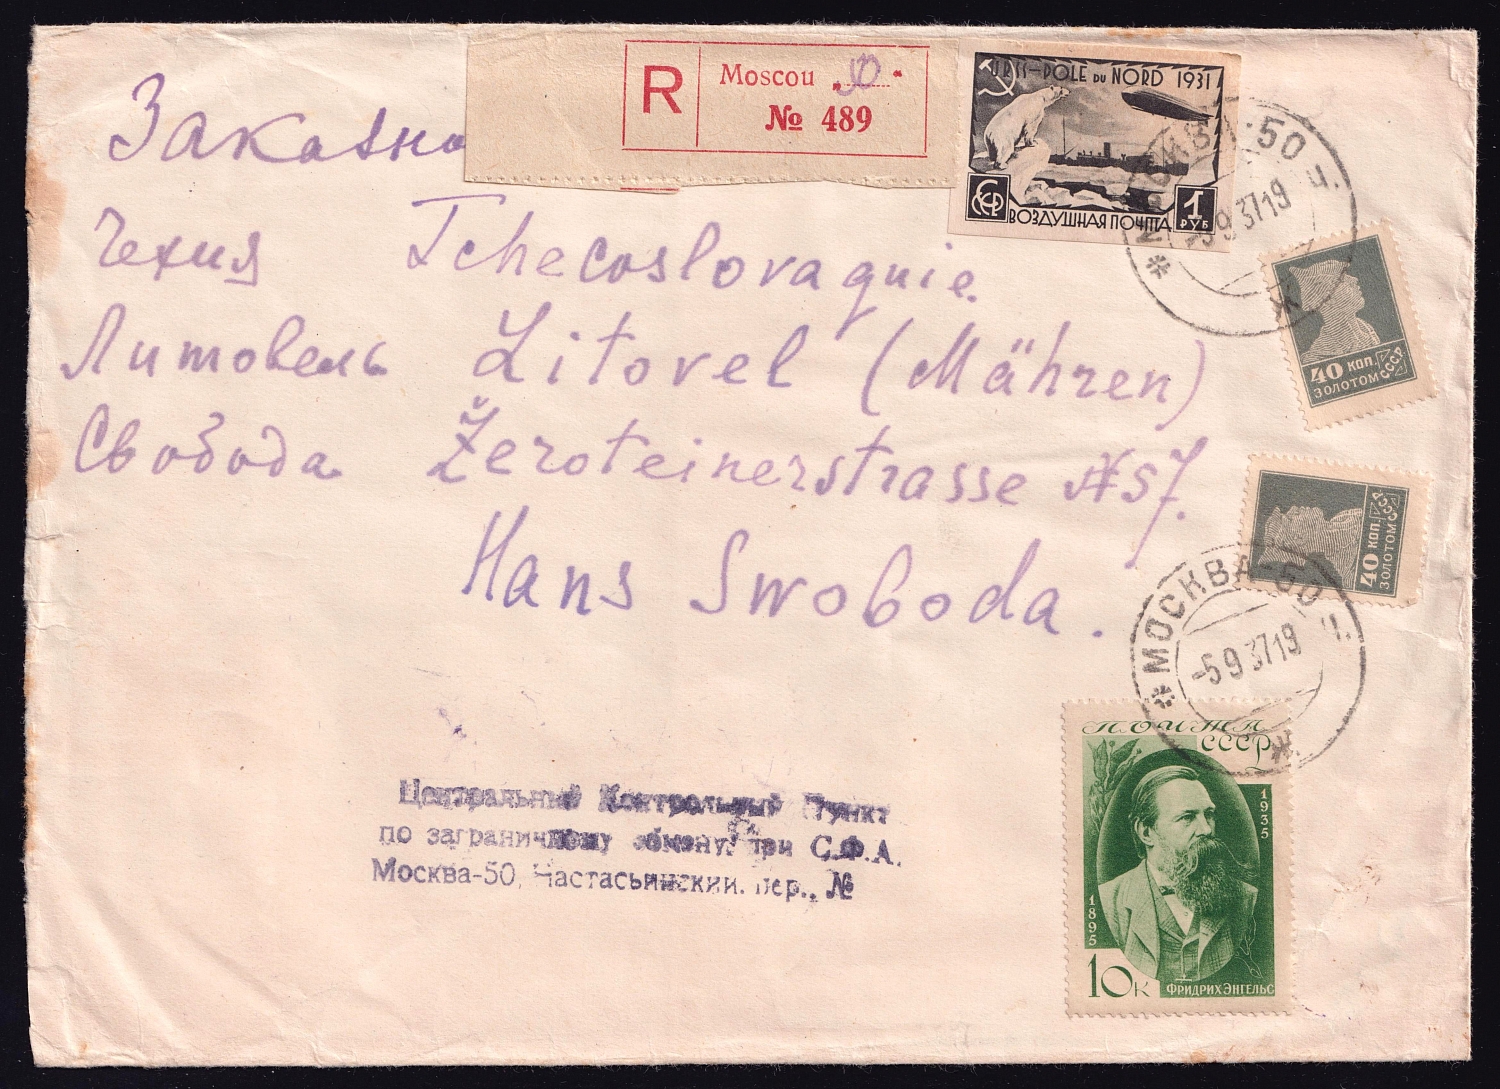 Заказно
R
Moscou 50
№ 489
URSS-POLE DU NORD 1931
СССР
ВОЗДУШНАЯ ПОЧТА
1 РУБ
МОСКВА-50
-5 9 37 19
Ч.
Чехия Tchecoslovaquie.
Литовель Litovel (Mähren)
Свобода Žeroteinerstrasse №57.
Hans Swoboda.
40 КОП.
ЗОЛОТОМ
СССР
40 КОП.
ЗОЛОТОМ
СССР
МОСКВА-50
-5 9 37 19
Ч.
ПОЧТА
СССР
1935
1895
10К
ФРИДРИХ ЭНГЕЛЬС
Центральный Контрольный Пункт
по заграничному обмену при С.Ф.А.
Москва-50, Настасьинский пер., №